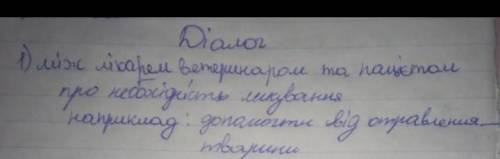 Діалог
1) між лікарем ветеринаром та пацієтом
про необхідність лікування
наприклад: допомогти від отравления
тварини